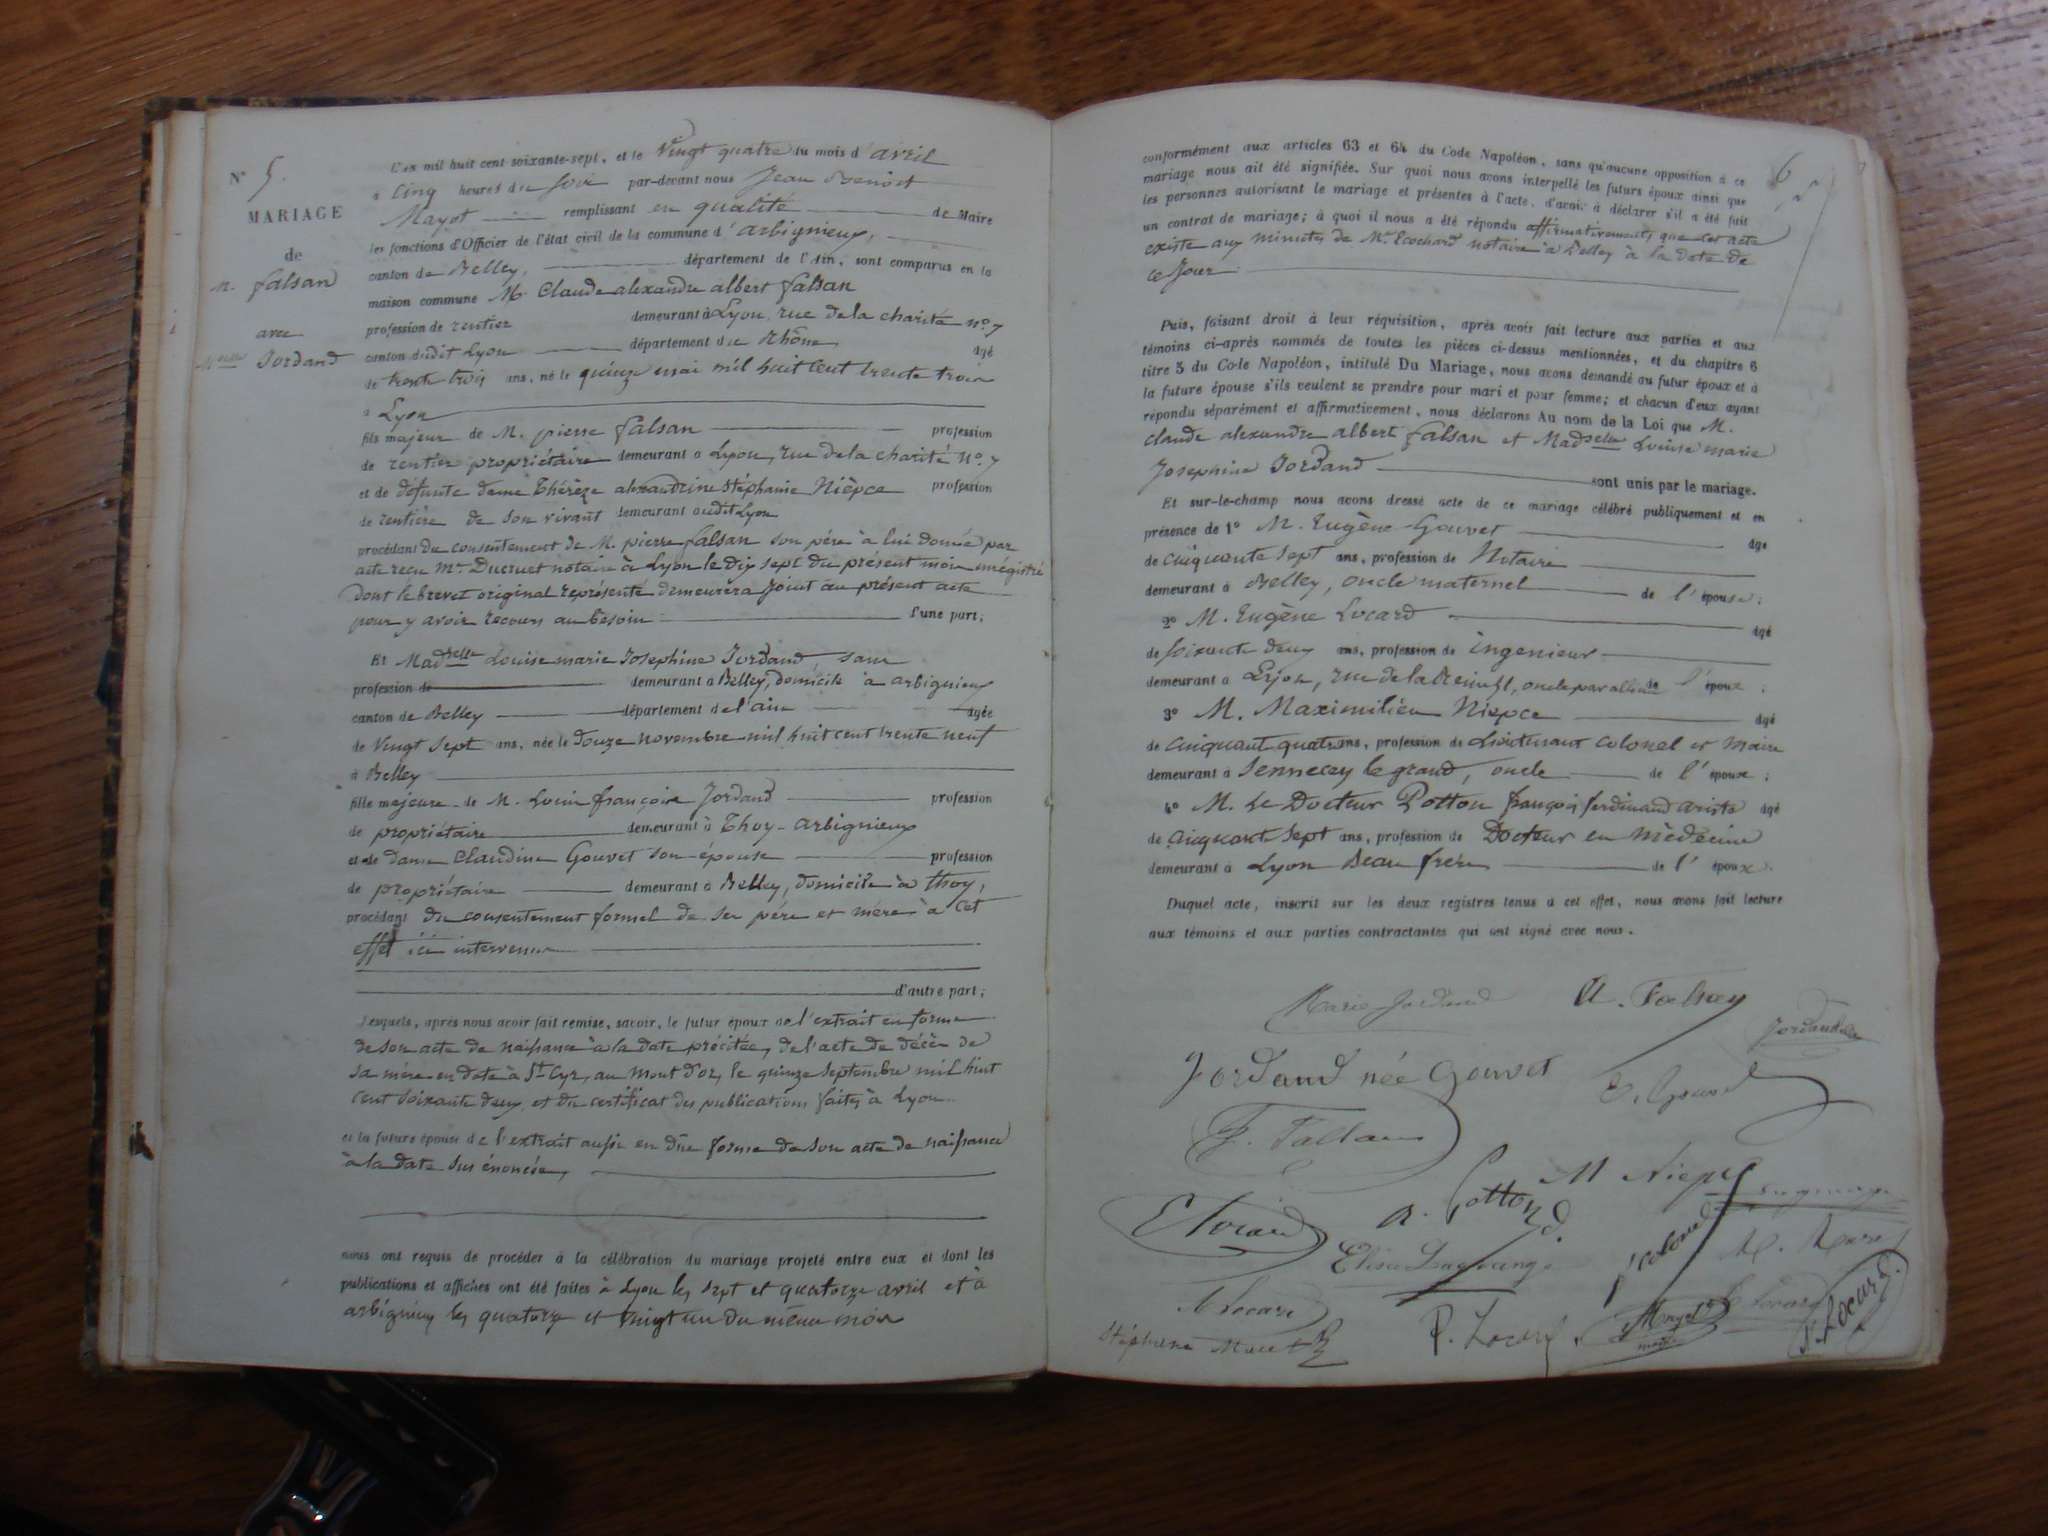 N° 5.
MARIAGE
de
M. falsan
avec
Melle Jordand
L'an mil huit cent soixante-sept, et le Vingt quatre du mois d'avril
à Cinq heures du Soir par-devant nous Jean Benoit
Mayot remplissant en qualité de Maire
les fonctions d'Officier de l'état civil de la commune d'arbignieux,
canton de Belley, département de l'Ain, sont comparus en la
maison commune M. Claude alexandre albert falsan
profession de rentier demeurant à Lyon, rue de la charité n° 7
canton dudit Lyon département du Rhône âgé
de trente trois ans, né le quinze mai mil huit cent trente trois
à Lyon
fils majeur de M. pierre falsan profession
de rentier propriétaire demeurant à Lyon, rue de la charité N° 7
et de défunte dame Thérèze alexandrine Stéphanie Nièpce profession
de rentière de son vivant demeurant audit Lyon
procédant du consentement de M. pierre falsan son père à lui donné par
acte reçu Me Ducruet notaire à Lyon le dix sept du présent mois enrégistré
Dont le brevet original représenté demeurera Joint au présent acte
pour y avoir recours au besoin l'une part;
Et Madselle Louise marie Josephine Jordand, sans
profession de demeurant à Belley, domicile à arbignieux
canton de Belley département de l'ain âgée
de Vingt sept ans, née le douze novembre mil huit cent trente neuf
à Belley
fille majeure de M. Louis françois Jordand profession
de propriétaire demeurant à Thoy-arbignieux
et de dame Claudine Gouvet son épouse profession
de propriétaire demeurant à Belley, domicile à Thoy,
procédant du consentement formel de ses père et mère à cet
effet ici intervenus
d'autre part;
Lesquels, après nous avoir fait remise, savoir, le futur époux de l'extrait en forme
de son acte de naissance à la date précitée, de l'acte de décès de
sa mère en date à St Cyr, au Mont d'or, le quinze septembre mil huit
cent soixante deux, et du certificat des publications faites à Lyon
et la future épouse de l'extrait aussi en due forme de son acte de naissance
à la date sus énoncée,
nous ont requis de procéder à la célébration du mariage projeté entre eux et dont les
publications et affiches ont été faites à Lyon les sept et quatorze avril et à
arbignieux les quatorze et vingt un du même mois
6
conformément aux articles 63 et 64 du Code Napoléon, sans qu'aucune opposition à ce
mariage nous ait été signifiée. Sur quoi nous avons interpellé les futurs époux ainsi que
les personnes autorisant le mariage et présentes à l'acte, d'avoir à déclarer s'il a été fait
un contrat de mariage; à quoi il nous a été répondu affirmativement, que cet acte
existe aux minutes de Me Cochard notaire à Belley à la date de
ce Jour
Puis, faisant droit à leur réquisition, après avoir fait lecture aux parties et aux
témoins ci-après nommés de toutes les pièces ci-dessus mentionnées, et du chapitre 6
titre 5 du Code Napoléon, intitulé Du Mariage, nous avons demandé au futur époux et à
la future épouse s'ils veulent se prendre pour mari et pour femme; et chacun d'eux ayant
répondu séparément et affirmativement, nous déclarons Au nom de la Loi que M.
Claude alexandre albert falsan et Madselle Louise marie
Josephine Jordand sont unis par le mariage.
Et sur-le-champ nous avons dressé acte de ce mariage célébré publiquement et en
présence de 1° M. Eugène Gouvet âgé
de cinquante sept ans, profession de Notaire
demeurant à Belley, oncle maternel de l'épouse;
2° M. Eugène Locard âgé
de soixante deux ans, profession de ingenieur
demeurant à Lyon, rue de la , oncle par alliance de l'époux;
3° M. Maximilien Nièpce âgé
de cinquant quatre ans, profession de Lieutenant colonel et maire
demeurant à Sennecey le grand, oncle de l'époux;
4° M. Le Docteur Potton françois ferdinand ariste âgé
de cinquant sept ans, profession de Docteur en médecine
demeurant à Lyon beau frère de l'époux.
Duquel acte, inscrit sur les deux registres tenus à cet effet, nous avons fait lecture
aux témoins et aux parties contractantes qui ont signé avec nous.
Marie Jordand A. Falsan
Jordand née Gouvet E. Gouvet
P. Falsan
A. Potton M Niepce
E Locard
Lt Colonel
A Locard
P. Locard
Mayot
maire